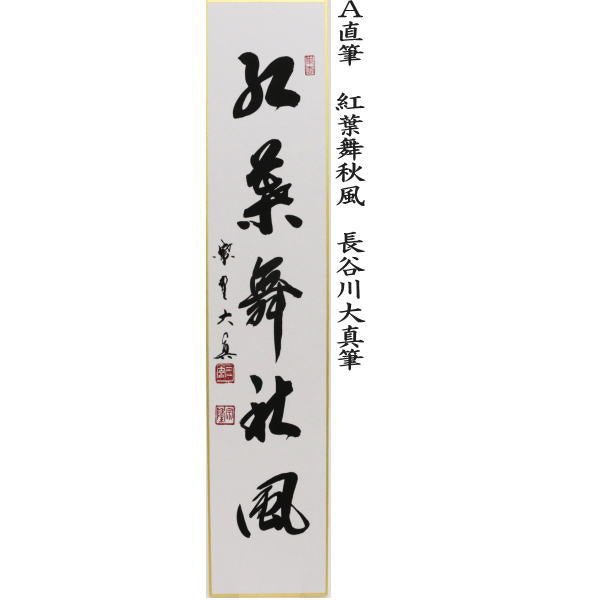 A直筆 紅葉舞秋風 長谷川大真筆
紅葉舞秋風
紫野大真